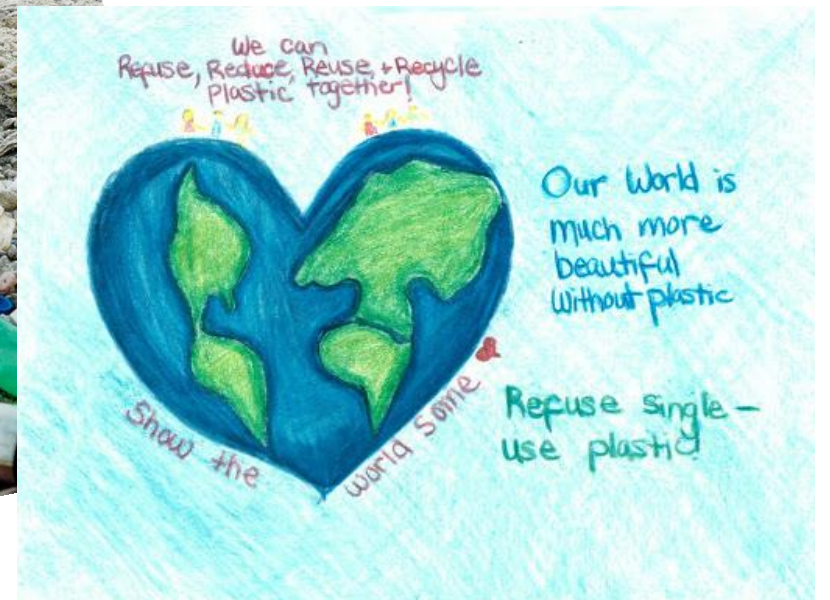 We can
Refuse, Reduce, Reuse, + Recycle
Plastic together!
Our World is
much more
beautiful
Without plastic
Show the
world some
Refuse single-
use plastic